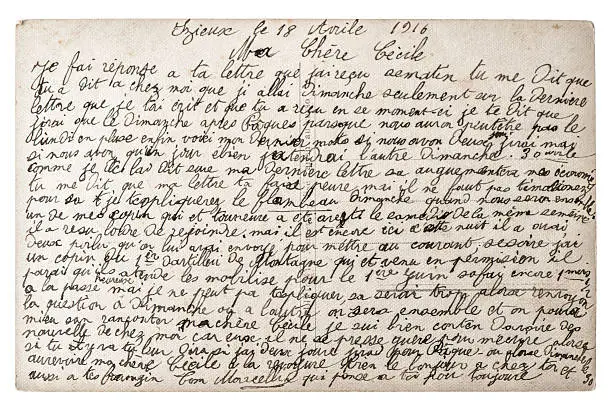 Izieux le 18 Avrile 1916
Ma Chère Cécile
Je fai réponse a ta lettre que jai reçu sematin tu me Dit que
tu a Dit a chez moi que je allai Dimanche seulement sur la Dernière
lettre que je tai écrit et que tu a reçu en se moment-ci je te Dit que
jirai que le Dimanche après Pâques parsque nous auron peutêtre pas le
lundi en pluse enfin voici mon Dernier mots si nous avon Deux jirai mai
si nous avon qu'un jour et bien jatendrai l'autre Dimanche. 30 avrile
comme je te lai Dit sur ma Dernière lettre sa augmentera mes économie
tu me Dit que ma lettre ta fase peure mai il ne faut pas
pour sa je texpliquerez le Dimanche quand nous seron ensemble
un de mes copin qui et toureure a été le samedi de la même semaine
il a resu lorde de rejoindre mai il est encore ici cette nuit il a ouai
Deux qu'on lui avai envoyé pour mettre au courant, sesoire jai
un copin du 1er Dartilleri de Montagne qui et venu en permision il
parai qu'ils atende les mobilise pour le 1ère Juin safay encore 1 mois
a la passé mai je ne peut pa texpliquer sa serai trop
la question a Dimanche ou a lautre on sera ensemble et on poura
mieu san rangonter machère Cécile je sui bien conten Davoire Des
nouvelle de chez moi car eux il ne se presse guère pour mécrire
si tu leur Dira si jai Deux jours jirai pour Pâque ou Dimanche
aurevoire ma chère Cécile a la revoiture bien le bonjour a chez toi et
aussi a tes Ton Marcelin qui pense a toi pour toujours